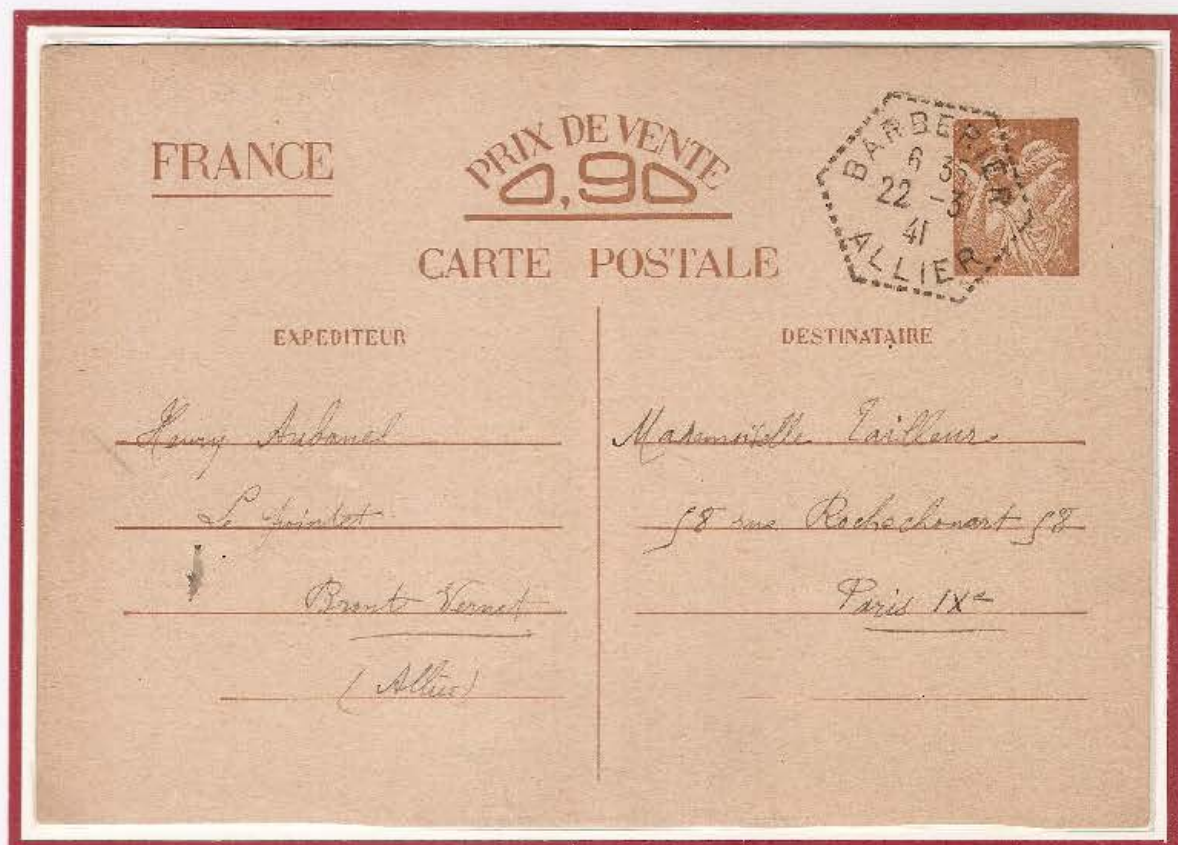 FRANCE
PRIX DE VENTE
0,90
CARTE POSTALE
BARBERIER
6 35
22 -3
41
ALLIER
EXPEDITEUR
Henry Aubanel
Le pointet
Brout Vernet
(Allier)
DESTINATAIRE
Mademoiselle Tailleur
58 rue Rochechouart 58
Paris IXe